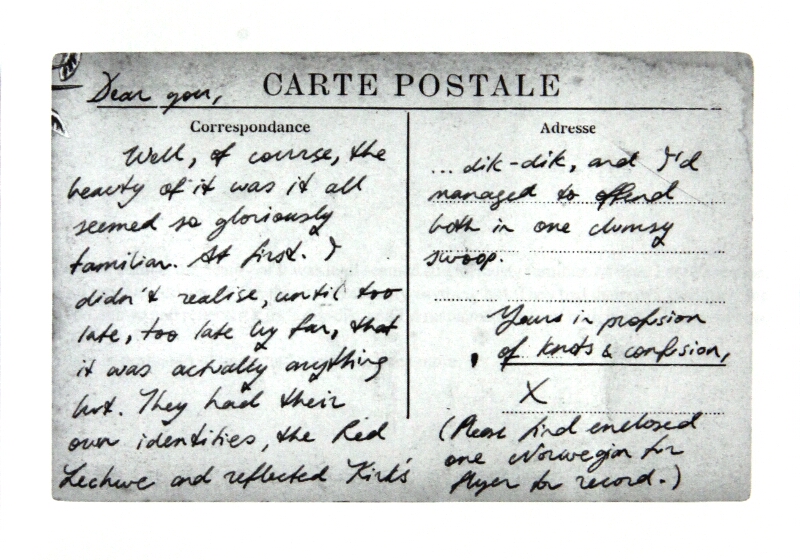 Dear you,
CARTE POSTALE
Correspondance
Well, of course, the
beauty of it was it all
seemed so gloriously
familiar. At first. I
didn't realise, until too
late, too late by far, that
it was actually anything
but. They had their
own identities, the Red
Lechwe and reflected Kirk's
Adresse
... dik-dik, and I'd
managed to offend
both in one clumsy
swoop.
Yours in profusion
of knots & confusion,
X
(Please find enclosed
one Norwegian for
flyer for record.)